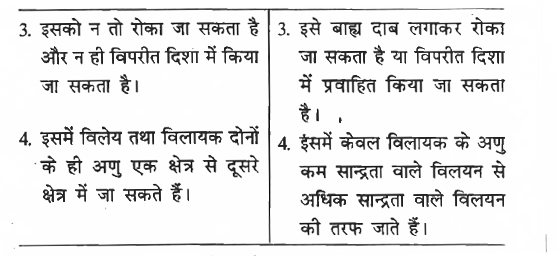 3. इसको न तो रोका जा सकता है
और न ही विपरीत दिशा में किया
जा सकता है।
4. इसमें विलेय तथा विलायक दोनों
के ही अणु एक क्षेत्र से दूसरे
क्षेत्र में जा सकते हैं।
3. इसे बाह्य दाब लगाकर रोका
जा सकता है या विपरीत दिशा
में प्रवाहित किया जा सकता
है।
4. इंसमें केवल विलायक के अणु
कम सान्द्रता वाले विलयन से
अधिक सान्द्रता वाले विलयन
की तरफ जाते हैं।